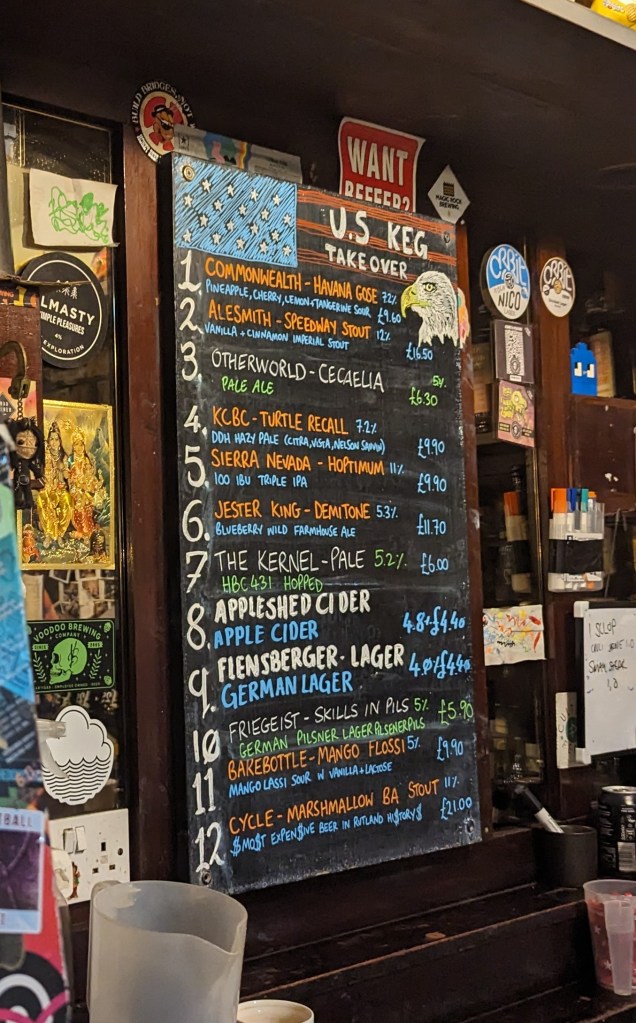 BUILD BRIDGES NOT
WANT
BEEEER?
MAGIC ROCK
BREWING
U.S KEG
TAKEOVER
1. COMMONWEALTH - HAVANA GOSE 7.2%
PINEAPPLE, CHERRY, LEMON + TANGERINE SOUR £9.60
2. ALESMITH - SPEEDWAY STOUT 12%
VANILLA + CINNAMON IMPERIAL STOUT £16.50
3. OTHERWORLD - CECAELIA 5%
PALE ALE £6.30
4. KCBC - TURTLE RECALL 7.2%
DDH HAZY PALE (CITRA, VISTA, NELSON SAUVIN) £9.90
5. SIERRA NEVADA - HOPTIMUM 11%
100 IBU TRIPLE IPA £9.90
6. JESTER KING - DEMITONE 5.3%
BLUEBERRY WILD FARMHOUSE ALE £11.70
7 THE KERNEL - PALE 5.2% £6.00
HBC 431 HOPPED
8. APPLESHED CIDER
APPLE CIDER 4.8% £4.40
9. FLENSBERGER - LAGER
GERMAN LAGER 4.0% £4.40
10 FRIEGEIST - SKILLS IN PILS 5% £5.90
GERMAN PILSNER LAGER PILSENER PILS
11 BAKEBOTTLE - MANGO FLOSSI 5% £9.90
MANGO LASSI SOUR W VANILLA + LACTOSE
12 CYCLE - MARSHMALLOW BA STOUT 11%
$MO$T EXPEN$IVE BEER IN RUTLAND HI$TORY$ £21.00
LMASTY
MPLE PLEASURES
4%
EXPLORATION
VOODOO BREWING
COMPANY
SINCE
2005
TBALL
ORBIT
NICO
ORBIT
1 SCLOP
1,2